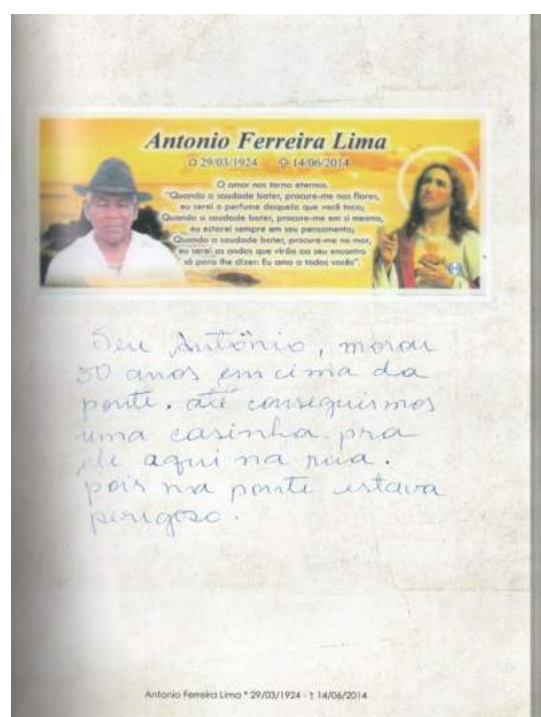 Antonio Ferreira Lima
✩ 29/03/1924 ✞ 14/06/2014
O amor nos torna eternos.
"Quando a saudade bater, procure-me nas flores,
eu serei o perfume daquela que você toca;
Quando a saudade bater, procure-me em si mesmo,
eu estarei sempre em seu pensamento;
Quando a saudade bater, procure-me no mar,
eu serei as ondas que virão ao seu encontro
só para lhe dizer: Eu amo a todos vocês".
Seu Antônio, morou
50 anos em cima da
ponte. até conseguirmos
uma casinha pra
ele aqui na rua.
pois na ponte estava
perigoso.
Antonio Ferreira Lima * 29/03/1924 - † 14/06/2014